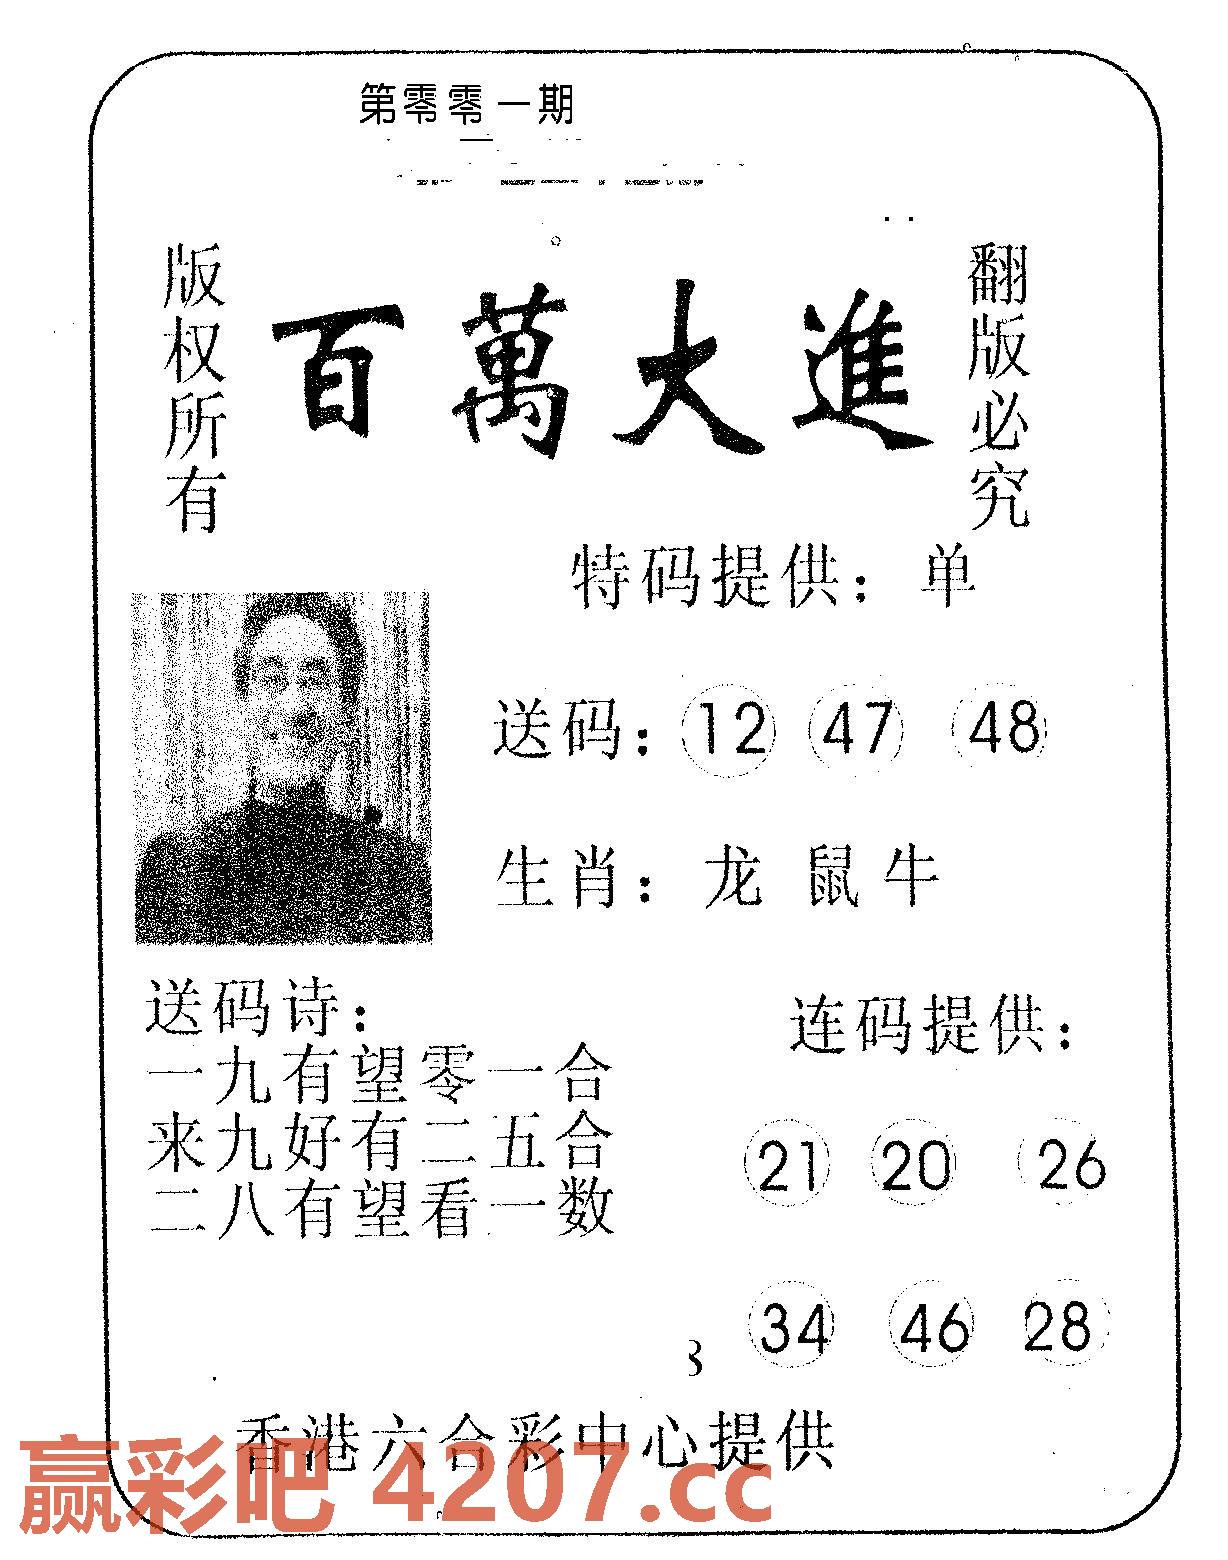 第零零一期
版权所有
百萬大進
翻版必究
特码提供：单
送码：12 47 48
生肖：龙 鼠 牛
送码诗：
一九有望零一合
来九好有二五合
二八有望看一数
连码提供：
21 20 26
34 46 28
香港六合彩中心提供
赢彩吧 4207.cc